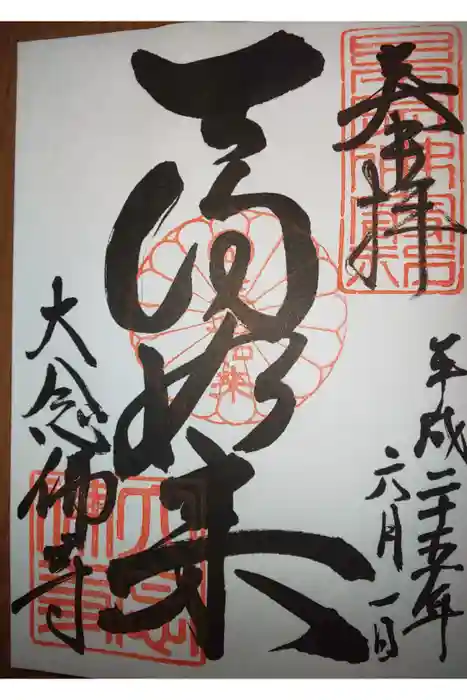 奉拝
平成二十五年
六月一日
天得如来
大念佛寺